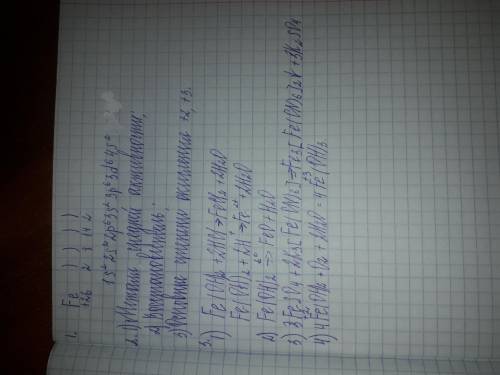 1. Fe ) ) ) )
+26 2 8 14 2
1s² 2s² 2p⁶ 3s² 3p⁶ 3d⁶ 4s²
2. 1) Металл средней активности;
2) Восстановитель.
3) Основные степени окисления +2, +3.
3.
1) Fe(OH)₂ + 2HCl → FeCl₂ + 2H₂O
Fe(OH)₂ + 2H⁺ → Fe²⁺ + 2H₂O
2) Fe(OH)₂ → FeO + H₂O
3) 3FeSO₄ + 2K₃[Fe(CN)₆] → Fe₃[Fe(CN)₆]₂↓ + 3K₂SO₄
4) 4Fe(OH)₂ + O₂ + 2H₂O = 4Fe(OH)₃